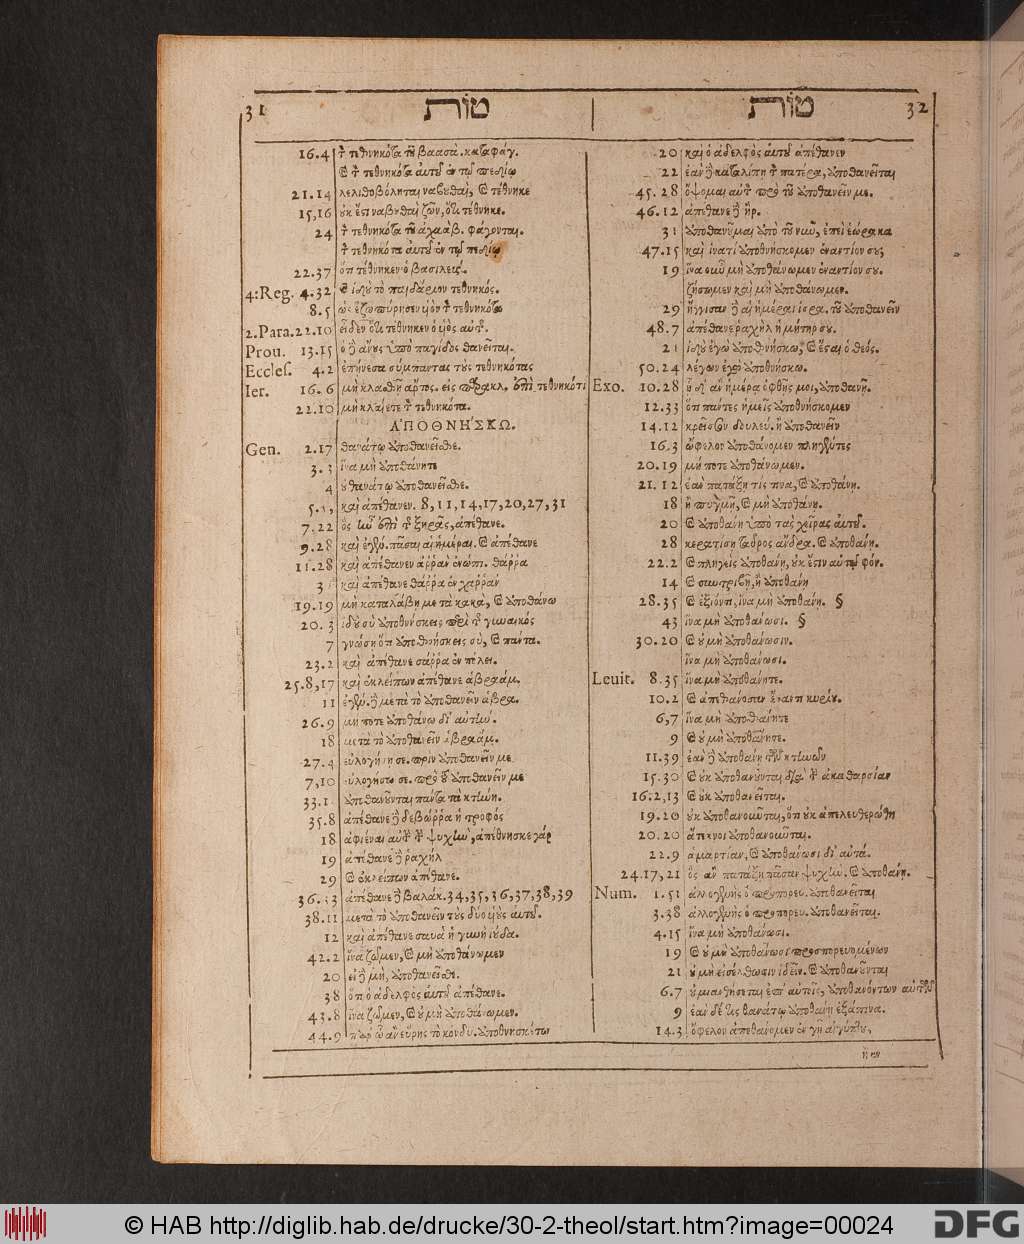 31 מות מות 32
16.4 τ τεθνηκότα τȣ βαασὰ. καταφάγ.
ϗ τ τεθνηκότα αυτȣ ἐν τῷ πεδίῳ
21.14 λελιθοβόληται ναβȣθαὶ, ϗ τέθνηκε
15,16 ȣκ ἔςι ναβȣθαὶ ζῶν, ὅτι τέθνηκε.
24 τ τεθνηκότα τȣ ἀχαὰβ. φάγονται.
τ τεθνηκότα αυτȣ ἐν τῷ πεδίῳ
22.37 ὅτι τέθνηκεν ὁ βασιλεύς.
4.Reg. 4.32 ϗ ἰδȣ τὸ παιδάριον τεθνηκός.
8.5 ὡς ἐζωπύρησεν υἱὸν τ τεθνηκότα
2.Para. 22.10 εἶδεν ὅτι τέθνηκεν ὁ υἱὸς αὐτ.
Prou. 13.15
Eccles. 4.2 ἐπήνεσα σύμπαντας τȣς τεθνηκότας
Ier. 16.6
22.10 μὴ κλαίετε τ τεθνηκότα.
ἈΠΟΘΝΉΣΚΩ.
Gen. 2.17 θανάτῳ ἀποθανεῖσθε.
3.3 ἵνα μὴ ἀποθάνητε
4 ȣ θανάτῳ ἀποθανεῖσθε.
5.5, καὶ ἀπέθανεν. 8,11,14,17,20,27,31
7.22 ξηρᾶς, ἀπέθανε.
9.28 πᾶσαι αἱ ἡμέραι. ϗ ἀπέθανε
11.28 καὶ ἀπέθανεν ἀρρὰν ἐνώπι. θάρρα
3 καὶ ἀπέθανε θάρρα ἐν χαρράν
19.19 μὴ καταλάβῃ με τὰ κακὰ, ϗ ἀποθάνω
20.3 ἰδȣ σὺ ἀποθνήσκεις περὶ τ γυναικός
7 γνώσῃ ὅτι ἀποθνήσκεις σὺ, ϗ πάντα.
23.2 καὶ ἀπέθανε σάρρα ἐν πόλει.
25.8,17 καὶ ἐκλείπων ἀπέθανε ἀβραάμ.
11 μετὰ τὸ ἀποθανεῖν ἀβρα.
26.9 μή ποτε ἀποθάνω δι' αὐτήν.
18 μετὰ τὸ ἀποθανεῖν ἀβραάμ.
27.4 πρὶν ἀποθανεῖν με
7,10 εὐλογήσω σε. πρὸ τȣ ἀποθανεῖν με
33.1 ἀποθανȣνται πάντα τὰ κτήνη.
35.8 ἀπέθανε δεβώρρα ἡ τροφός
18 ἀφιέναι αὐτ τ ψυχὴν, ἀπέθνησκε γάρ
19 ἀπέθανε ῥαχήλ
29 ϗ ἐκλείπων ἀπέθανε.
36.33 ἀπέθανε βαλάκ. 34,35,36,37,38,39
38.11 μετὰ τὸ ἀποθανεῖν τȣς δύο υἱȣς αυτȣ.
12 καὶ ἀπέθανε σαυὰ ἡ γυνὴ ἰȣδα.
42.2 ἵνα ζῶμεν, ϗ μὴ ἀποθάνωμεν
20 εἰ μὴ, ἀποθανεῖσθε.
38 ὅτι ὁ ἀδελφὸς αυτȣ ἀπέθανε.
43.8 ἵνα ζῶμεν, ϗ ȣ μὴ ἀποθάνωμεν.
44.9 παρ' ᾧ ἂν εὕρῃς τὸ κόνδυ. ἀποθνησκέτω
20 καὶ ὁ ἀδελφὸς αυτȣ ἀπέθανεν
22 ἐὰν καταλίπῃ τ πατέρα, ἀποθανεῖται
45.28 ὄψομαι αὐτ πρὸ τȣ ἀποθανεῖν με.
46.12 ἀπέθανε ἤρ.
31 ἀποθανȣμαι ἀπὸ τȣ νυν, ἐπεὶ ἑώρακα
47.15 καὶ ἱνατί ἀποθνήσκομεν ἐναντίον σȣ;
19 ἵνα ȣν μὴ ἀποθάνωμεν ἐναντίον σȣ.
ζήσωμεν καὶ μὴ ἀποθάνωμεν.
29 ἤγγισαν αἱ ἡμέραι ἰσρα. τȣ ἀποθανεῖν
48.7 ἀπέθανε ῥαχὴλ ἡ μήτηρ σȣ.
21 ἰδȣ ἐγὼ ἀποθνήσκω, ϗ ἔςαι ὁ θεός.
50.24 λέγων ἐγὼ ἀποθνήσκω.
Exo. 10.28 ᾗ δ' ἂν ἡμέρᾳ ὀφθῇς μοι, ἀποθανῇ.
12.33 ὅτι πάντες ἡμεῖς ἀποθνήσκομεν
14.12 κρεῖσσον δȣλεύ. ἢ ἀποθανεῖν
16.3 ὤφελον ἀπεθάνομεν πληγέντες
20.19 μή ποτε ἀποθάνωμεν.
21.12 ἐὰν πατάξῃ τίς τινα, ϗ ἀποθάνῃ.
18 ἢ πυγμῇ, ϗ μὴ ἀποθάνῃ.
20 ϗ ἀποθάνῃ ὑπὸ τὰς χεῖρας αυτȣ.
28 κερατίσῃ ταῦρος ἄνδρα. ϗ ἀποθάνῃ.
22.2 ϗ πληγεὶς ἀποθάνῃ, ȣκ ἔςιν αὐτῷ φόν.
14 ϗ συντριβῇ, ἢ ἀποθάνῃ
28.35 ϗ ἐξιόντι, ἵνα μὴ ἀποθάνῃ. §
43 ἵνα μὴ ἀποθάνωσι. §
30.20 ϗ ȣ μὴ ἀποθάνωσιν.
ἵνα μὴ ἀποθάνωσι.
Leuit. 8.35 ἵνα μὴ ἀποθάνητε.
10.2 ϗ ἀπεθάνοσαν ἔναντι κυρίȣ.
6,7 ἵνα μὴ ἀποθάνητε
9 ϗ ȣ μὴ ἀποθάνητε.
11.39 ἐὰν ἀποθάνῃ τῶν κτηνῶν
15.30 ϗ ȣκ ἀποθανȣνται διὰ τ ἀκαθαρσίαν
16.2,13 ϗ ȣκ ἀποθανεῖται.
19.20 ȣκ ἀποθανȣνται, ὅτι ȣκ ἀπελευθερώθη
20.20 ἄτεκνοι ἀποθανȣνται.
22.9 ἁμαρτίαν, ϗ ἀποθάνωσι δι' αὐτά.
24.17,21 ὃς ἂν πατάξῃ πᾶσαν ψυχὴν. ϗ ἀποθάνῃ.
Num. 1.51 ἀλλογενὴς ὁ προσπορευ. ἀποθανεῖται
3.38 ἀλλογενὴς ὁ προσπορευ. ἀποθανεῖται.
4.15 ἵνα μὴ ἀποθάνωσι.
19 ϗ ȣ μὴ ἀποθάνωσι προσπορευομένων
21 ȣ μὴ εἰσέλθωσιν ἰδεῖν. ϗ ἀποθανȣνται
6.7 ȣ μιανθήσεται ἐπ' αὐτοῖς, ἀποθανόντων αὐτῶν
9 ἐὰν δέ τις θανάτῳ ἀποθάνῃ ἐξάπινα.
14.3 ὄφελον ἀπεθάνομεν ἐν γῇ αἰγύπτȣ,
ἢ ἐν
© HAB http://diglib.hab.de/drucke/30-2-theol/start.htm?image=00024
DFG